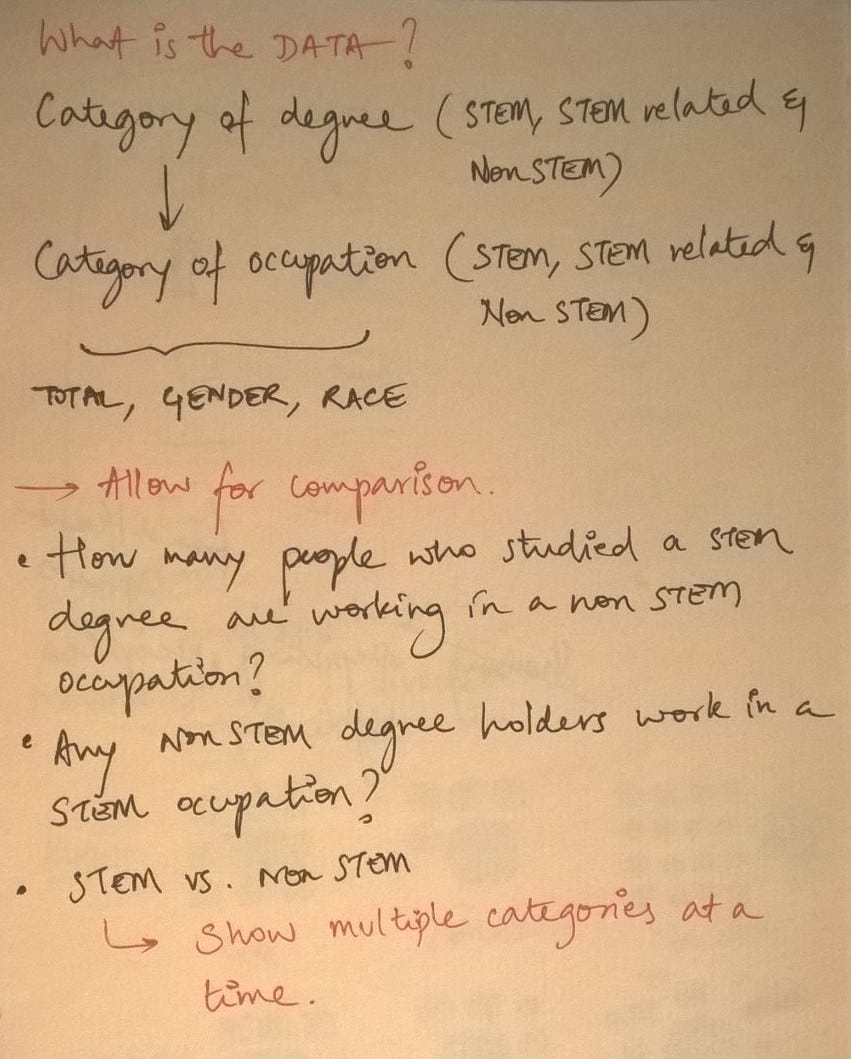 What is the DATA?
Category of degree (STEM, STEM related &
Non STEM)
Category of occupation (STEM, STEM related &
Non STEM)
TOTAL, GENDER, RACE
→ Allow for comparison.
• How many people who studied a STEM
degree are working in a non STEM
occupation?
• Any Non STEM degree holders work in a
STEM occupation?
• STEM vs. Non STEM
↳ Show multiple categories at a
time.